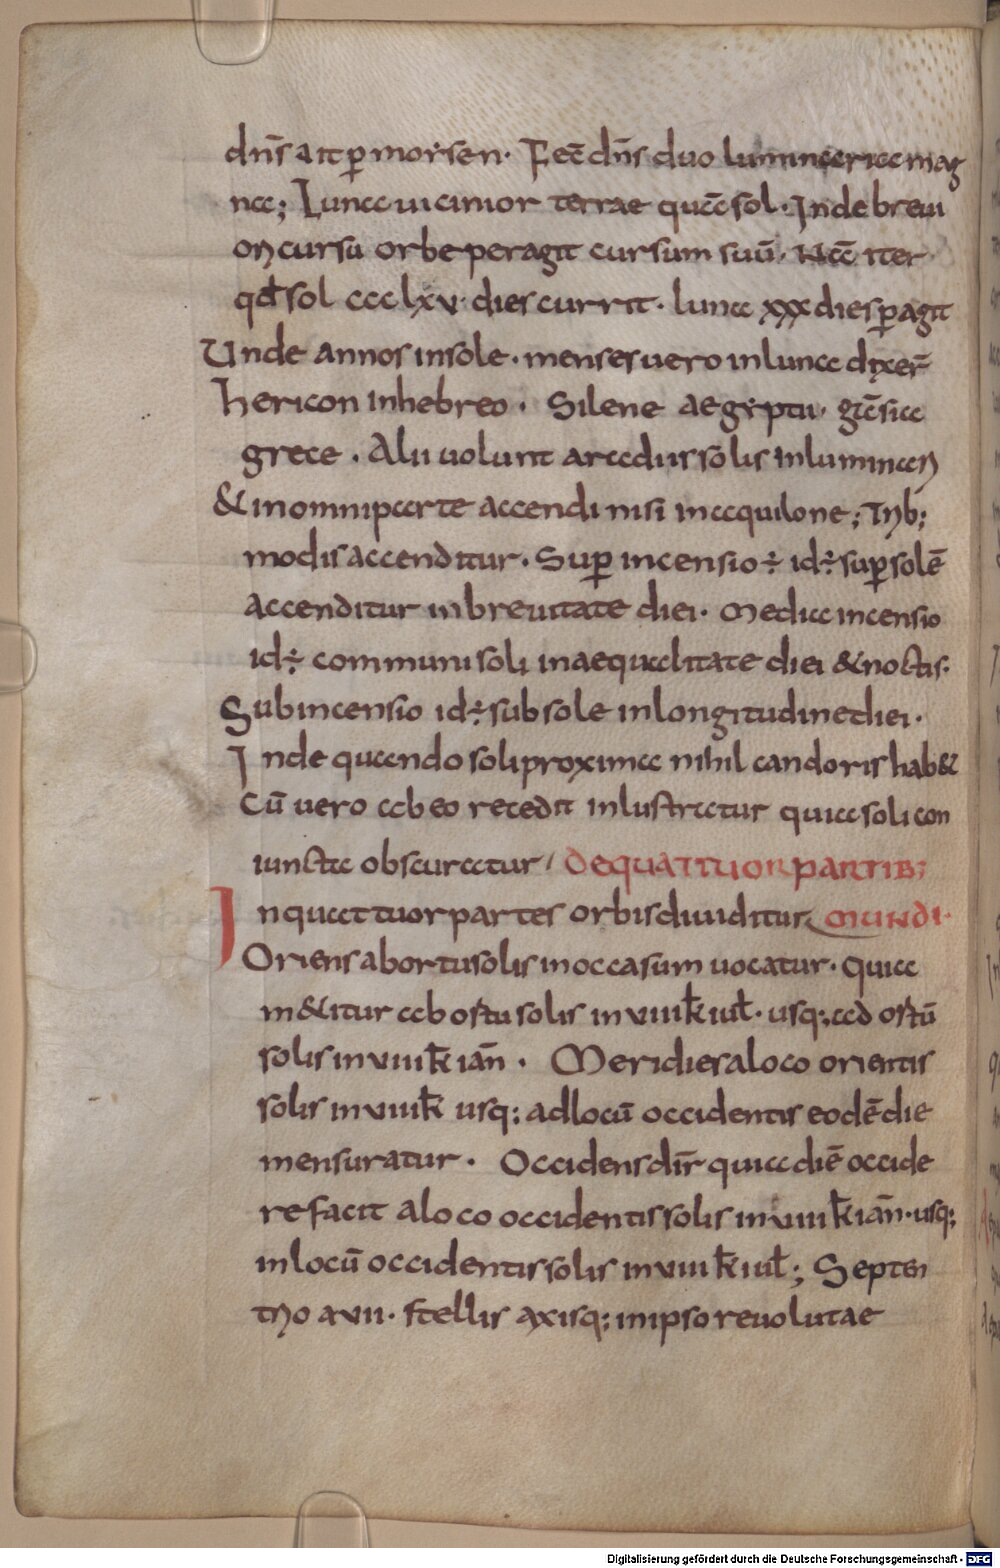 dn̄s ait ꝑ moẏsen· Fec̄ dn̄s duo luminaria mag
na; Luna uicinior terrae quā sol· Inde breui
on cursu orbe peragit cursum suū· Nā iter
qđ sol ccclxv· dies currit· luna xxx dies ꝑagit
Unde annos in sole· menses uero in luna dixer̄
hericon in hebreo· Silene aegẏptii· gēsia
grece· Alii uolunt arcdiis solis inluminan
& in omni parte accendi nisi in aequilone; Tnb;
modis accenditur· Suꝑ incensio ÷ id÷ suꝑ solē
accenditur in breuitate diei· Media incensio
id÷ communi soli in aequalitate diei & noctis·
Sub incensio id÷ sub sole in longitudine diei·
Inde quando soli proxima nihil candoris hab&
Cū uero ab eo recedit inlustratur quia soli con
iuncta obscuratur/ DE QUATTUOR PARTIB;
In quattuor partes orbis diuiditur MUNDI·
Oriens ab ortu solis in occasum uocatur· Quia
m&itur ab ostu solis in viiii k̄ iul̄· usq; ad ostū
solis in viiii k̄ iān· Meridies a loco orientis
solis in viiii k̄ usq; ad locū occidentis eodē die
mensuratur· Occidens dīr quia diē occide
re facit a loco occidentis solis in viiii k̄ iān· usq;
in locū occidentis solis in viiii k̄ iul̄; Septen
trio a vii· stellis axisq; in ipso reuolutae
Digitalisierung gefördert durch die Deutsche Forschungsgemeinschaft - DFG